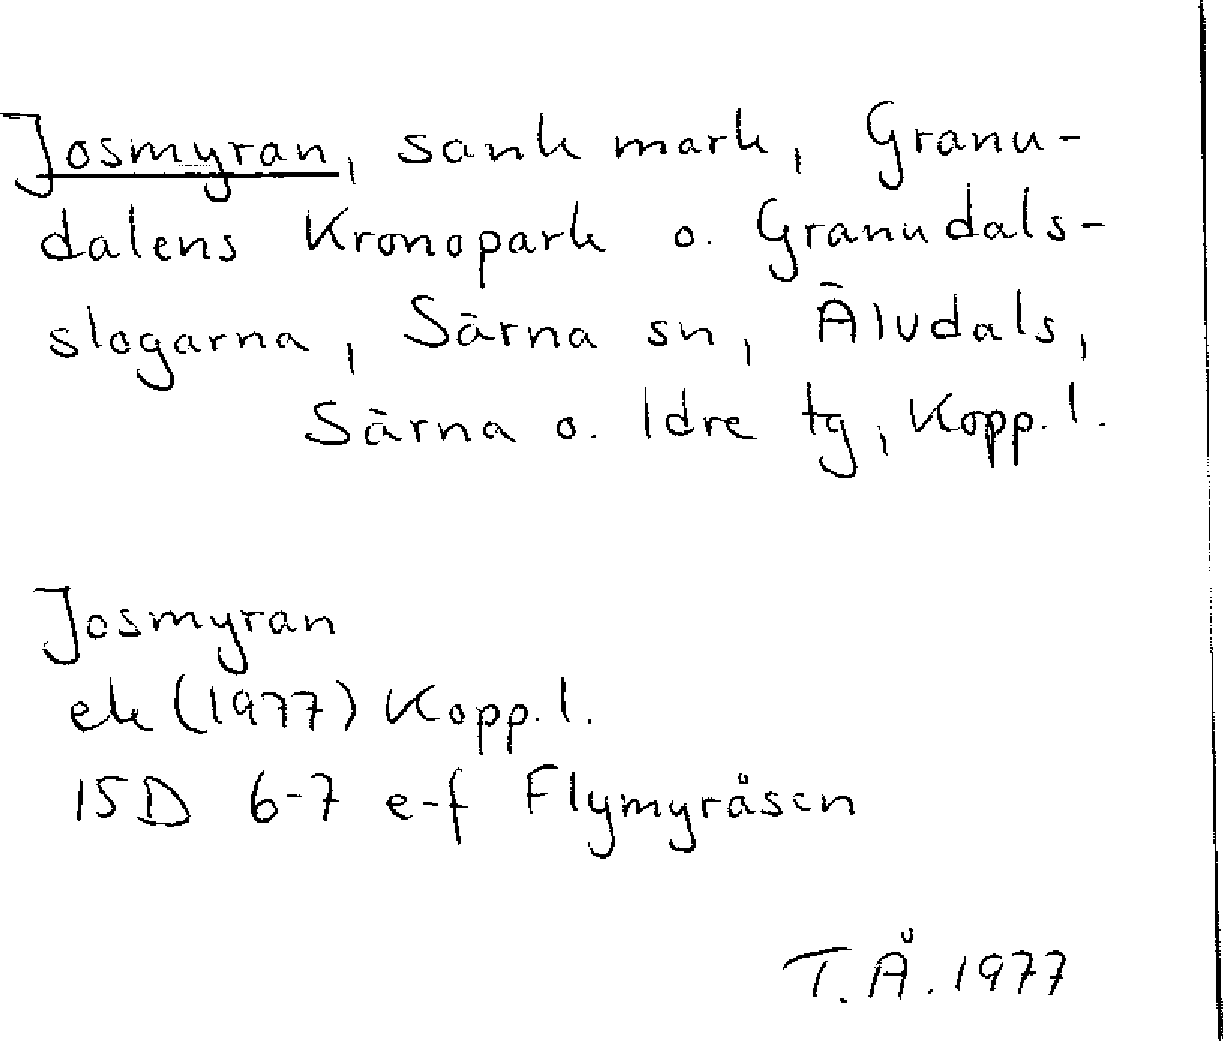 Josmyran, sank mark, Granu-
dalens Kronopark o. Granudals-
slogarna, Särna sn, Älvdals,
Särna o. Idre tg, Kopp. l.
Josmyran
ek (1977) Kopp. l.
15D 6-7 e-f Flymyråsen
T. Å. 1977